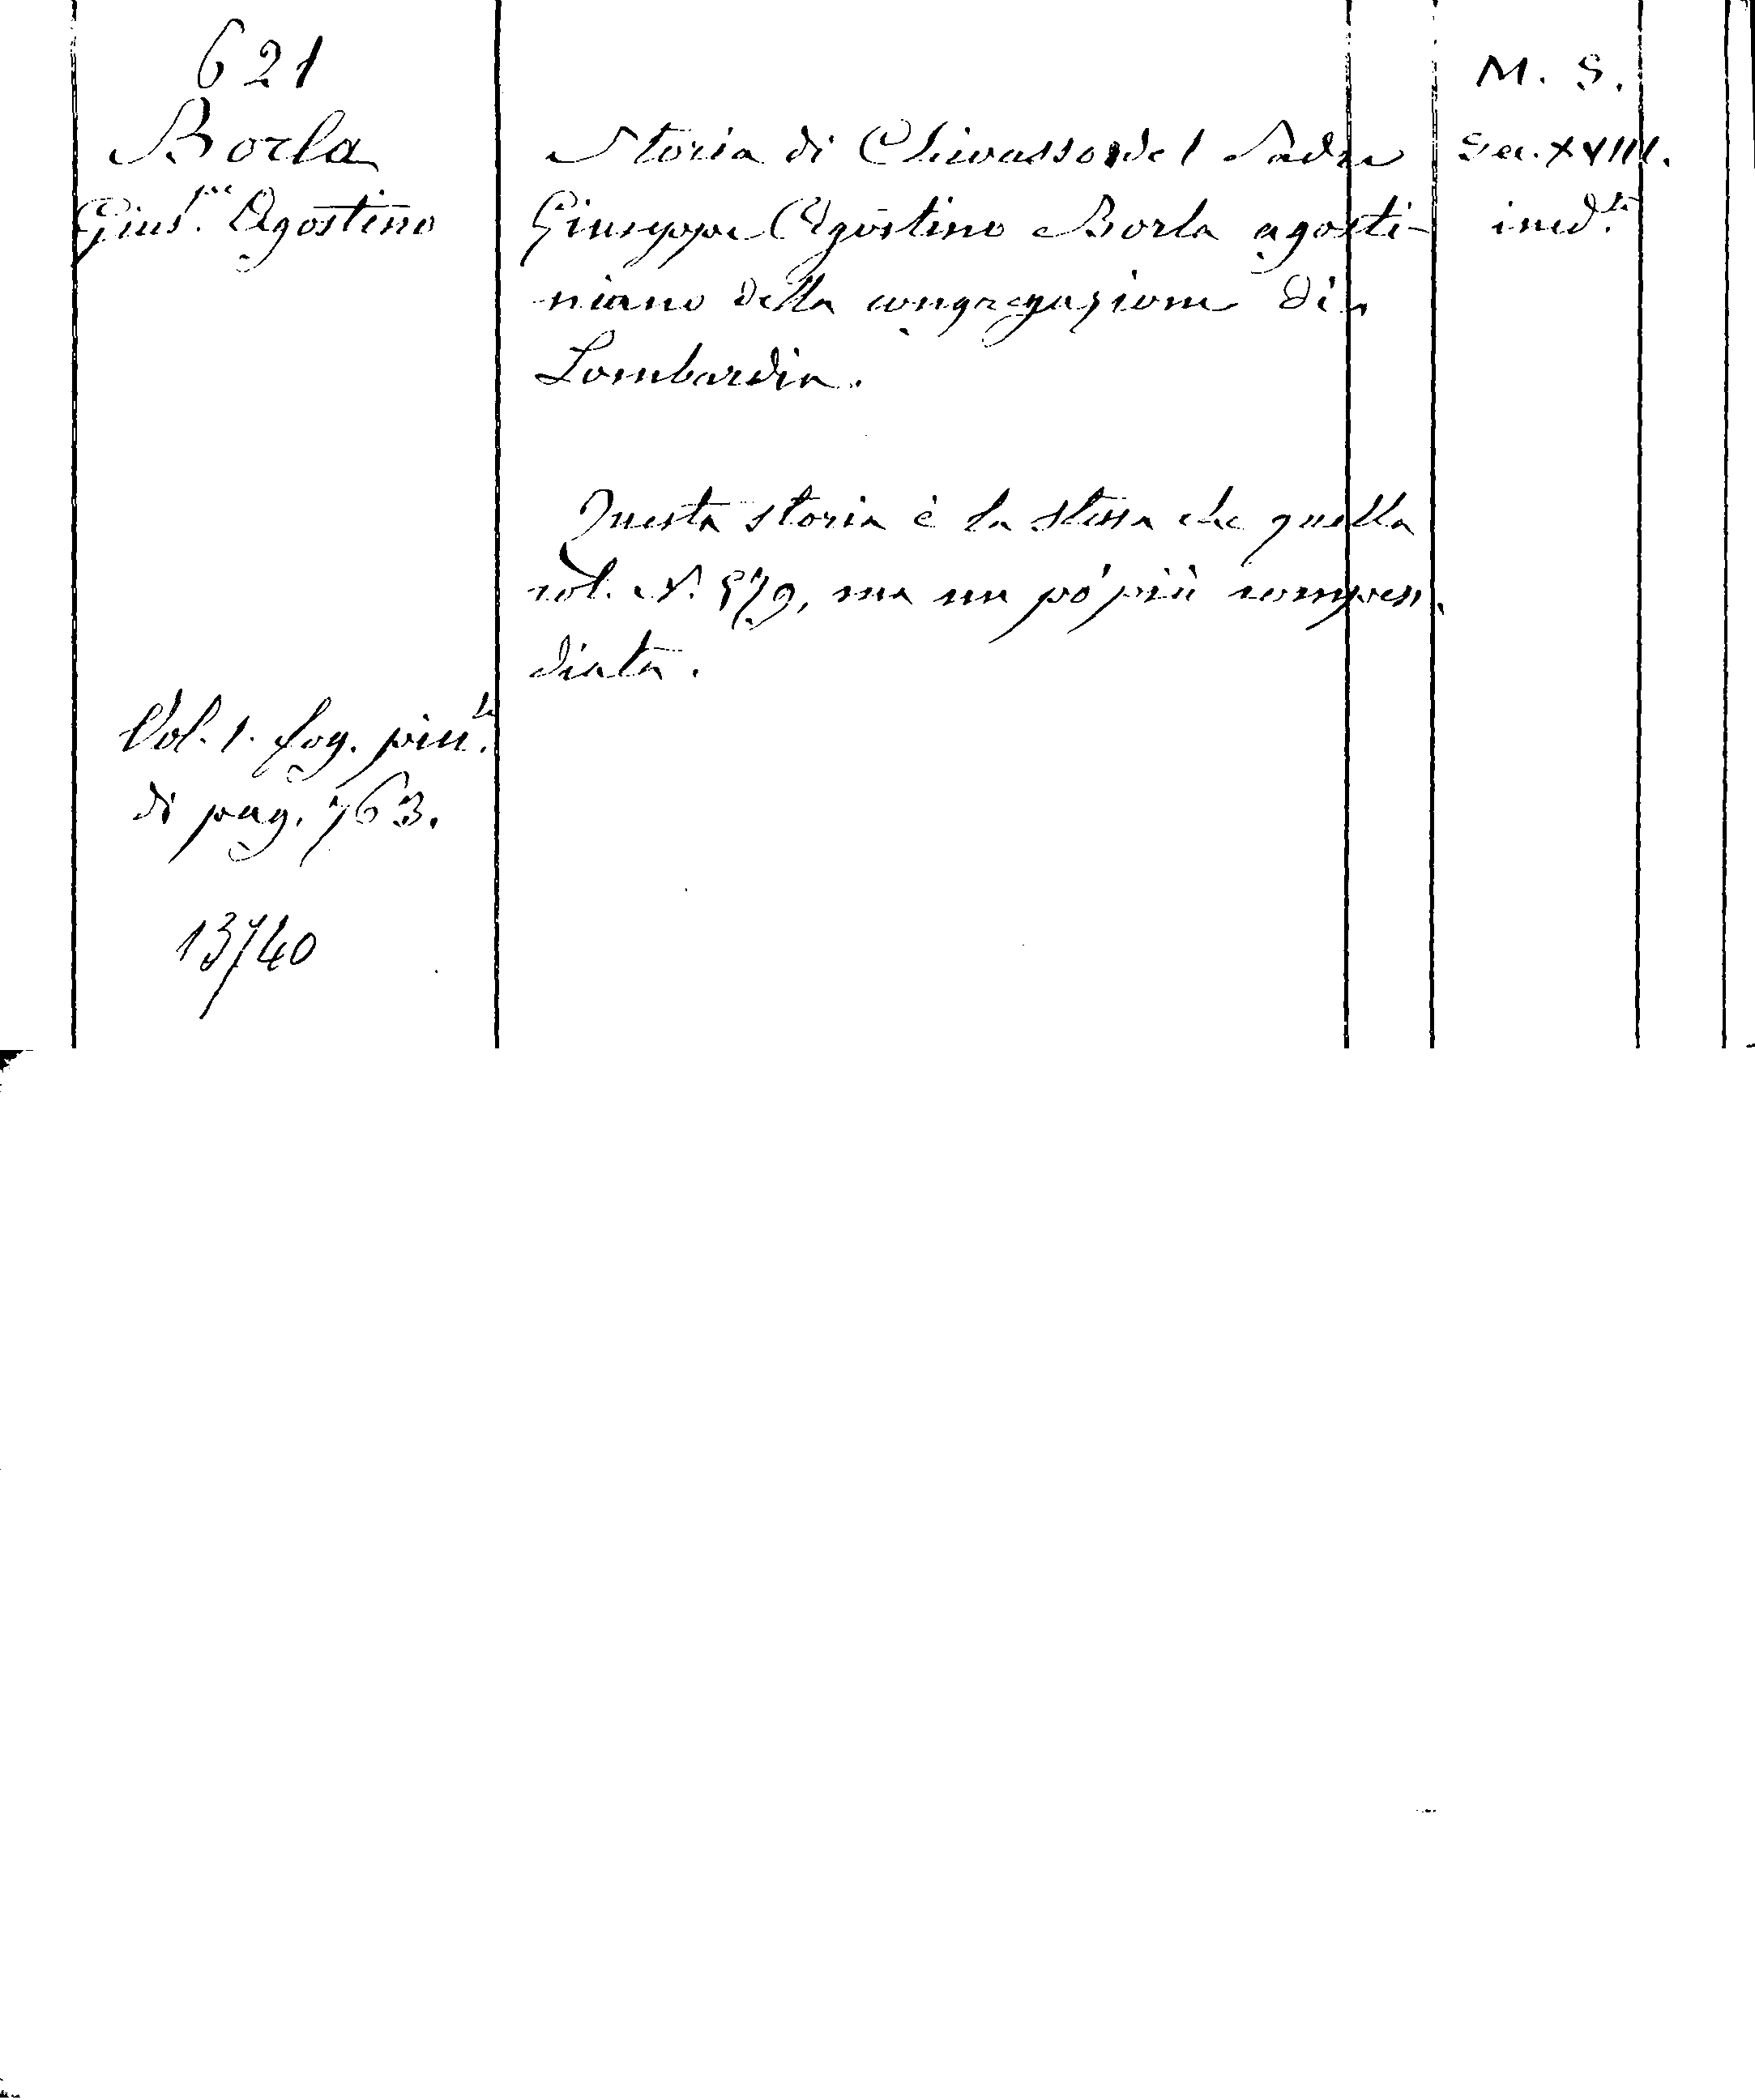 621
Borla
Gius.pe Agostino
Storia di Chivasso del Padre
Giuseppe Agostino Borla agosti-
niano della congregazione di
Lombardia.
Questa storia è la stessa che quella
vol. N. 579, ma un pò più compen
diata.
Vol. 1. fog. picc.
di pag. 763.
13740
M. S.
Sec. XVIII.
ined.to